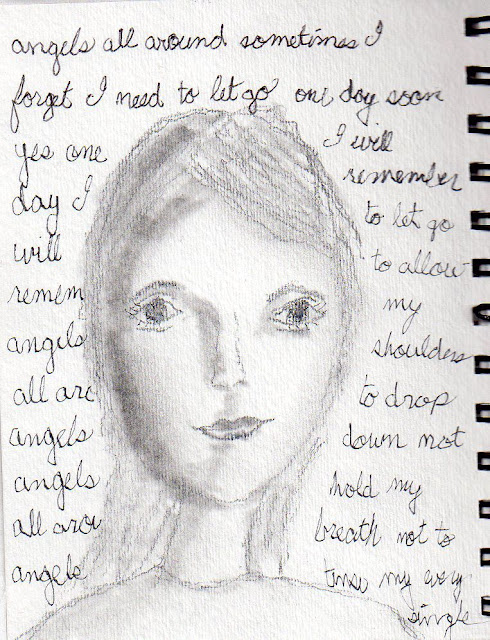 angels all around sometimes I
forget I need to let go one day soon
yes one
day I
will
remem
angels
all aro
angels
angels
all arou
angels
I will
remember
to let go
to allow
my
shoulders
to drop
down not
hold my
breath not to
tense my every
single